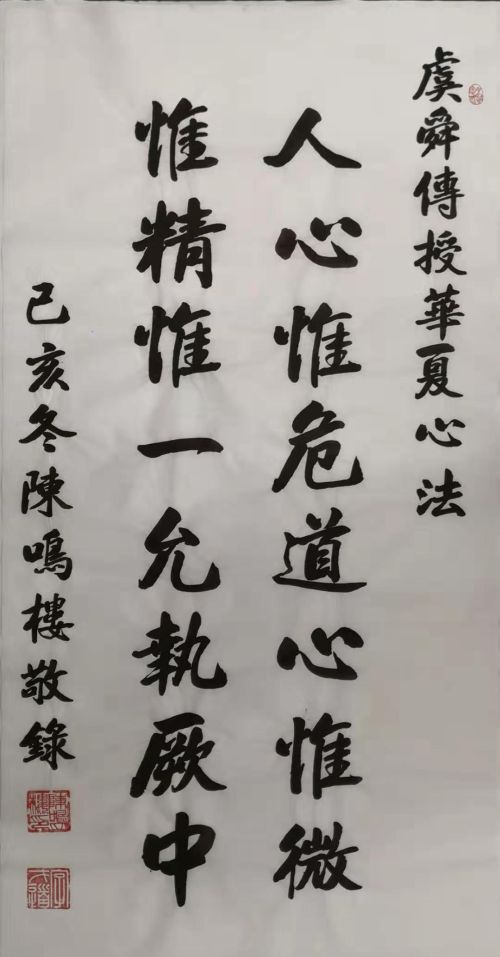 虞舜傳授華夏心法
人心惟危道心惟微
惟精惟一允執厥中
己亥冬陳鳴樓敬錄